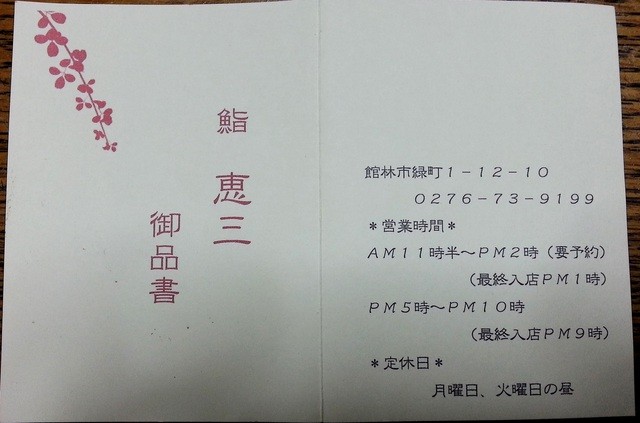 鮨 恵三
御品書
館林市緑町１－１２－１０
０２７６－７３－９１９９
＊営業時間＊
ＡＭ１１時半～ＰＭ２時（要予約）
（最終入店ＰＭ１時）
ＰＭ５時～ＰＭ１０時
（最終入店ＰＭ９時）
＊定休日＊
月曜日、火曜日の昼